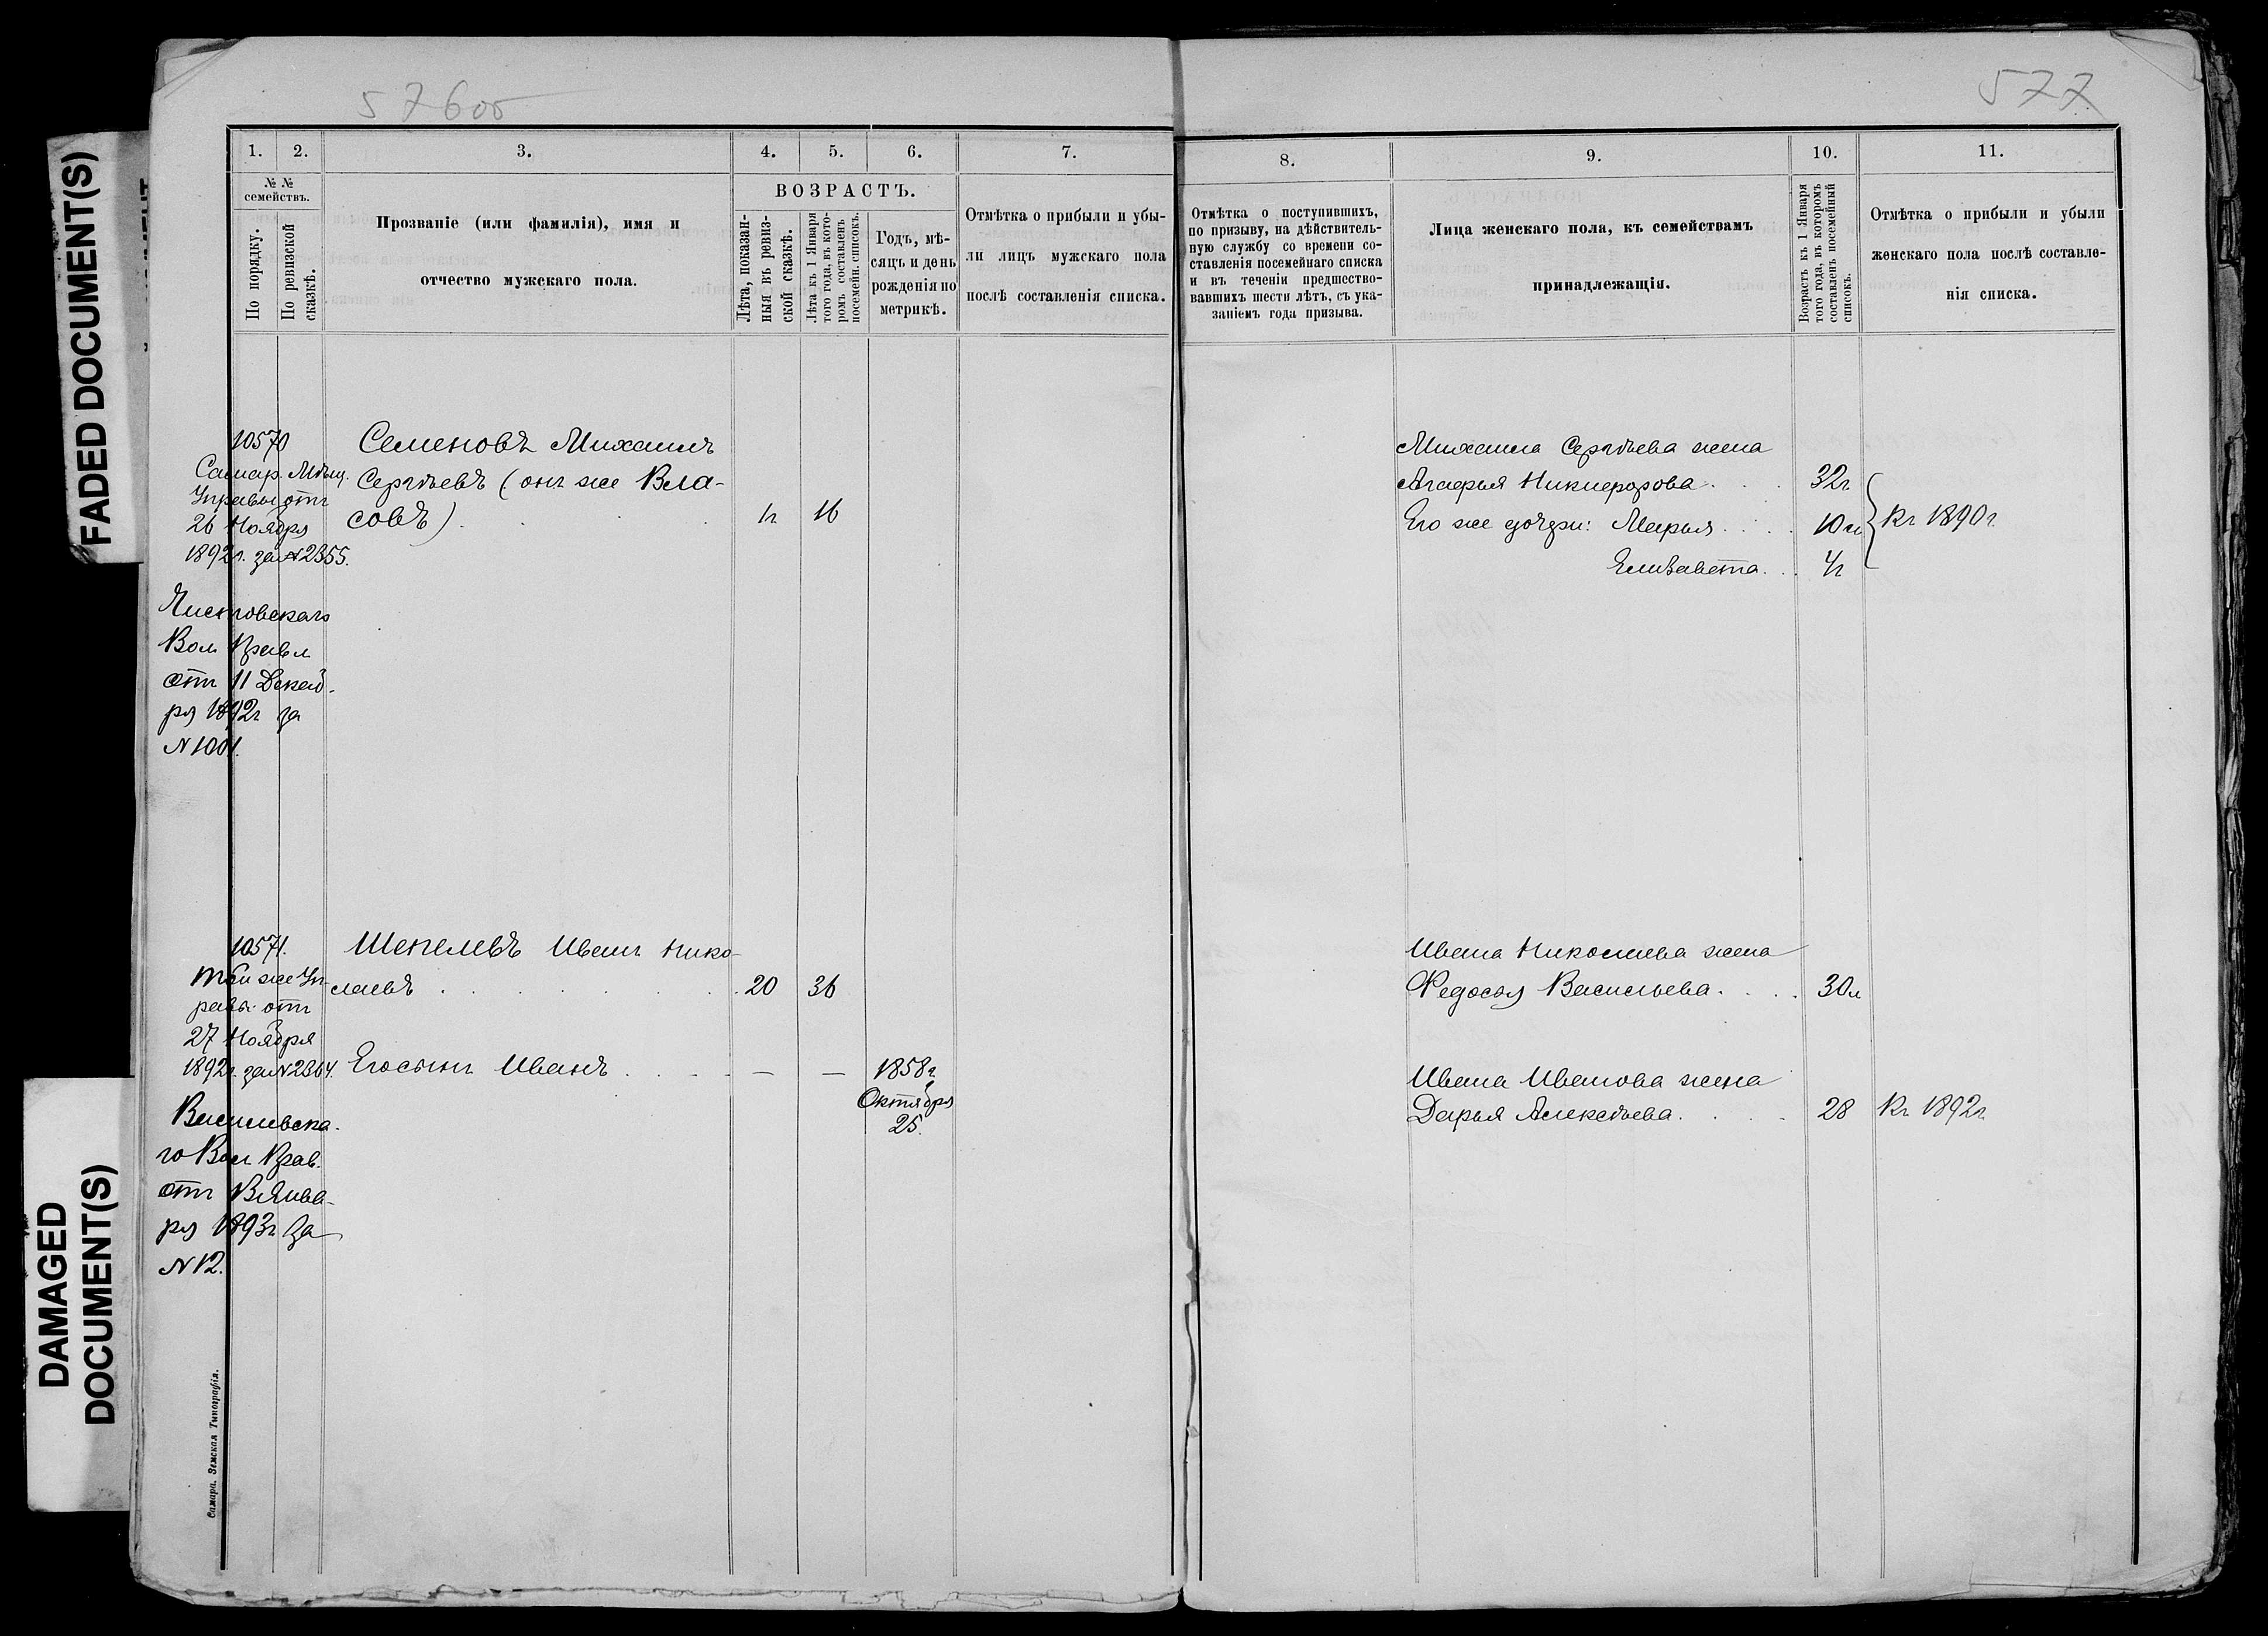 FADED DOCUMENT(S)
DAMAGED
DOCUMENT(S)
576об
577
1.
2.
3.
4.
5.
6.
7.
№ №
семействъ.
По порядку.
По ревизской
сказкѣ.
Прозваніе (или фамилія), имя и
отчество мужскаго пола.
ВОЗРАСТЪ.
Лѣта, показан-
ныя въ ревиз-
ской сказкѣ.
Лѣта къ 1 Января
того года, въ кото-
ромъ составленъ
посемейн. списокъ.
Годъ, мѣ-
сяцъ и день
рожденія по
метрикѣ.
Отмѣтка о прибыли и убы-
ли лицъ мужскаго пола
послѣ составленія списка.
8.
9.
10.
11.
Отмѣтка о поступившихъ,
по призыву, на дѣйствитель-
ную службу со времени со-
ставленія посемейнаго списка
и въ теченіи предшество-
вавшихъ шести лѣтъ, съ ука-
заніемъ года призыва.
Лица женскаго пола, къ семействамъ
принадлежащія.
Возрастъ къ 1 Января
того года, въ которомъ
составленъ посемейный
списокъ.
Отмѣтка о прибыли и убыли
женскаго пола послѣ составле-
нія списка.
10570
Самар. Мѣщ.
Управы отъ
26 Ноября
1892г. за №2355.
Вол. Правл
отъ 11 Декаб-
ря 1892г за
№1001.
Семеновъ Михаилъ
Сергѣевъ (онъ же Вла-
совъ) . . . 1г 16
Михаила Сергѣева жена
Агафья Никифорова . . . 32г
Его же дочери: Марья . . . 10л
Елизавета . . 4г
Къ 1890г.
10571.
Той же Уп-
равы отъ
27 Ноября
1892г. за №2364.
го Вол. Прав.
отъ Янва-
ря 1893г за
№12.
Шепелевъ Иванъ Нико-
лаевъ . . . . . 20 36
Его сынъ Иванъ . . . . — — 1858г.
Октября
25.
Ивана Николаева жена
Федосья Васильева . . . 30л
Ивана Иванова жена
Дарья Алексѣева . . . . 28 Къ 1892г.
Самара. Земская Типографія.